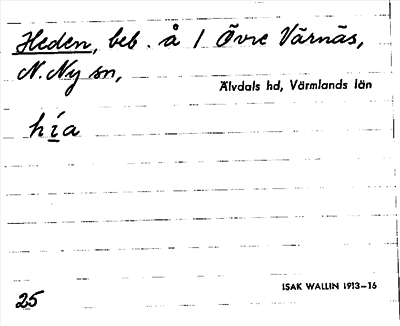 Heden, beb. å 1 Övre Värnäs,
N. Ny sn,
Älvdals hd, Värmlands län
hía
ISAK WALLIN 1913–16
25